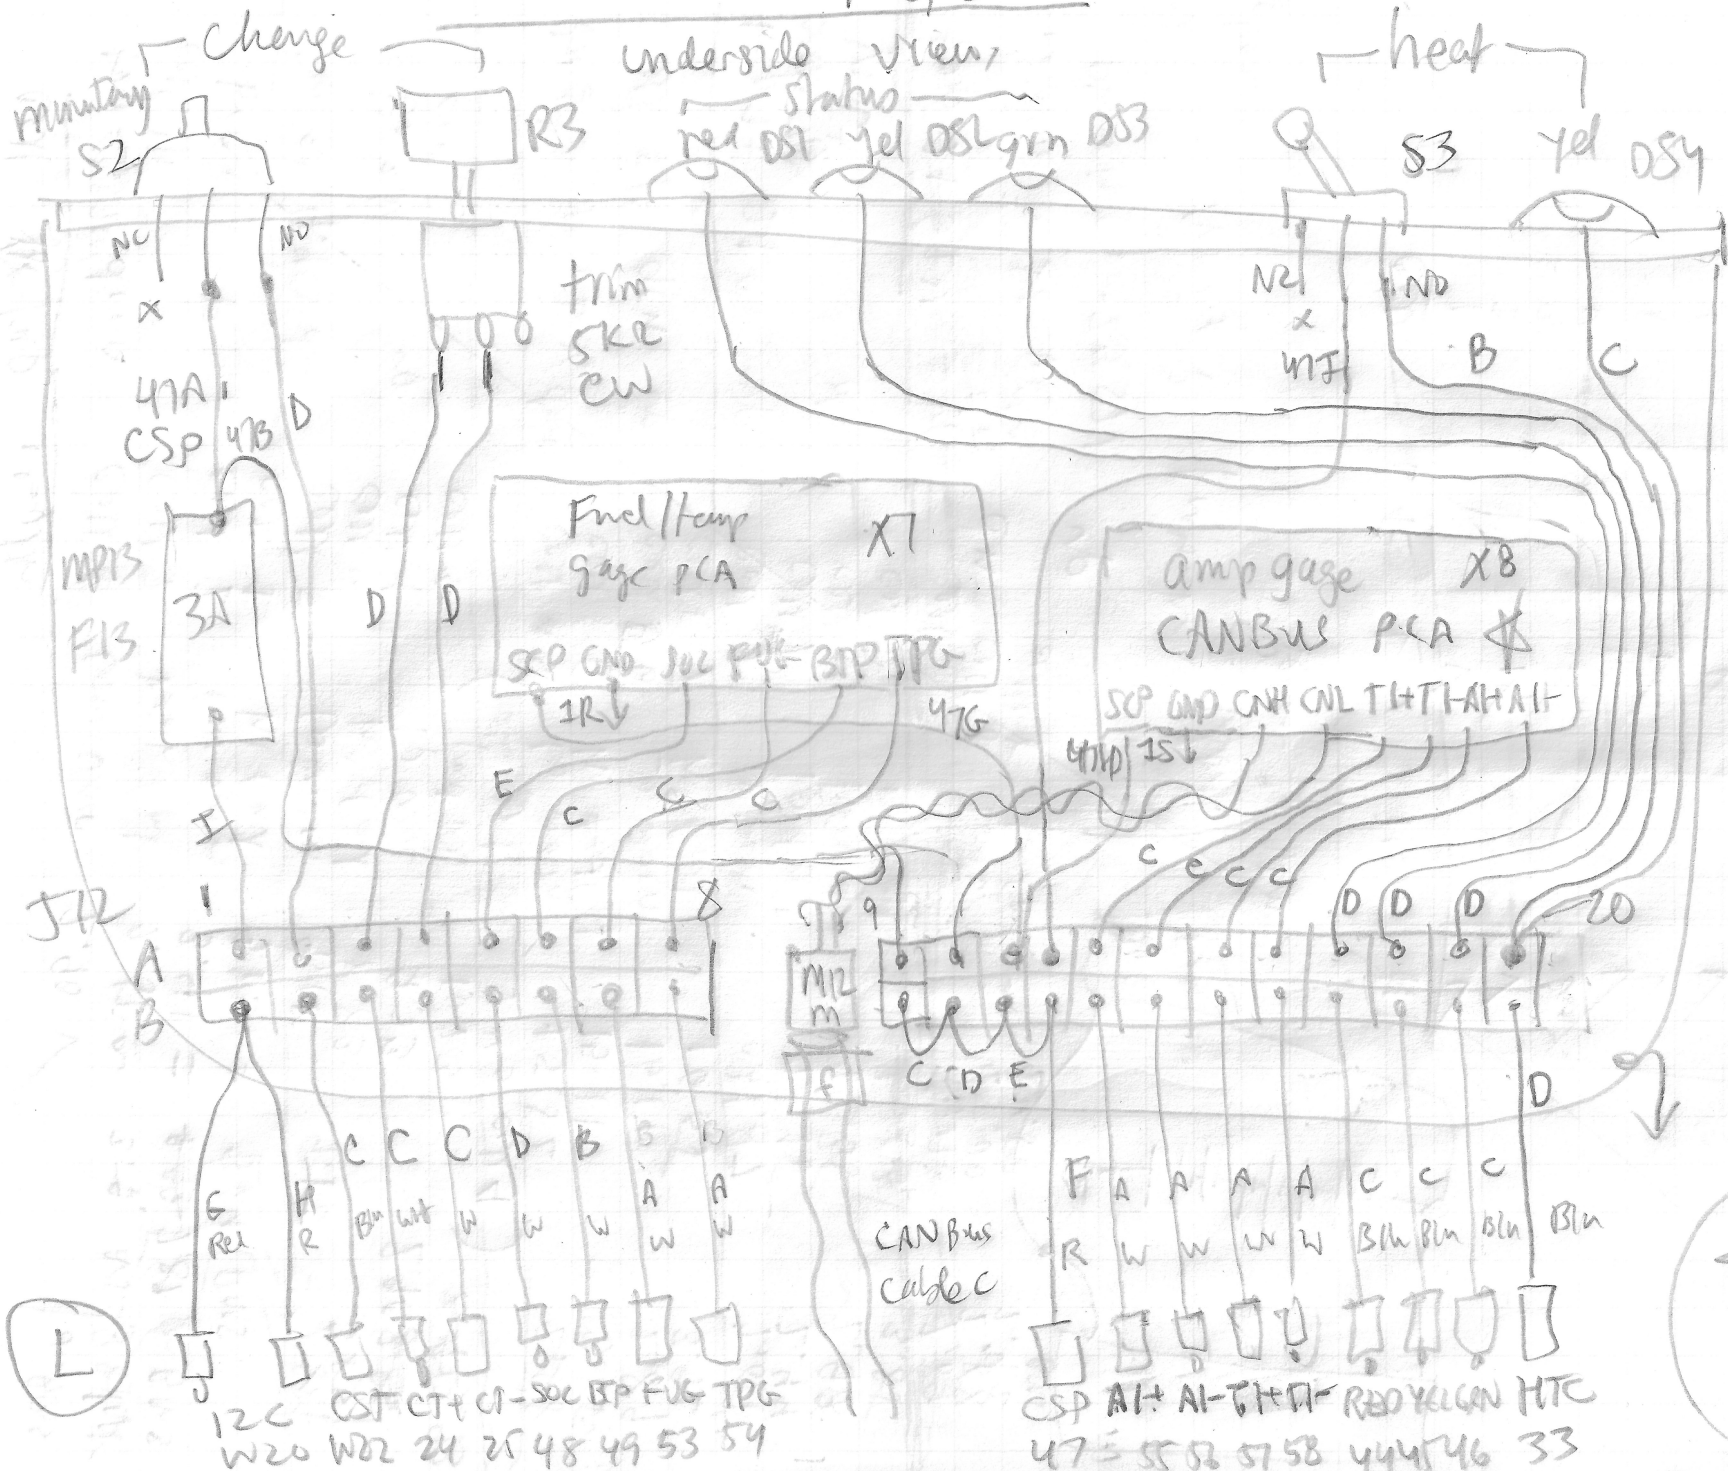 Charge
underside view,
heat
status
S2
R3
red DS1 yel DS2 grn DS3
S3
yel DS4
NC
NO
X
trim
5KΩ
CW
NC
NO
X
47J
B
C
47A
CSP
47B
D
MP13
F13
3A
D
D
Fuel/temp
gage PCA
X7
SCP GND SOC FUG BTP TPG
1R
47G
amp gage
CANBUS PCA
X8
SCP GND CNH CNL TI+ TI- AI+ AI-
1S
E
C
C
C
C
C
C
C
I
J12
1
8
9
D
D
D
20
A
B
M12
m
f
C D E
D
G
Red
H
R
C
Blu
C
Wht
C
W
D
W
B
W
A
W
A
W
CANBus
Cable C
F
R
A
W
A
W
A
W
A
W
C
Blu
C
Blu
C
Blu
Blu
L
12C
CST CT+ CT- SOC BTP FUG TPG
W20 W22 24 25 48 49 53 54
CSP AI+ AI- TI+ TI- RED YEL GRN HTC
47 55 56 57 58 44 45 46 33